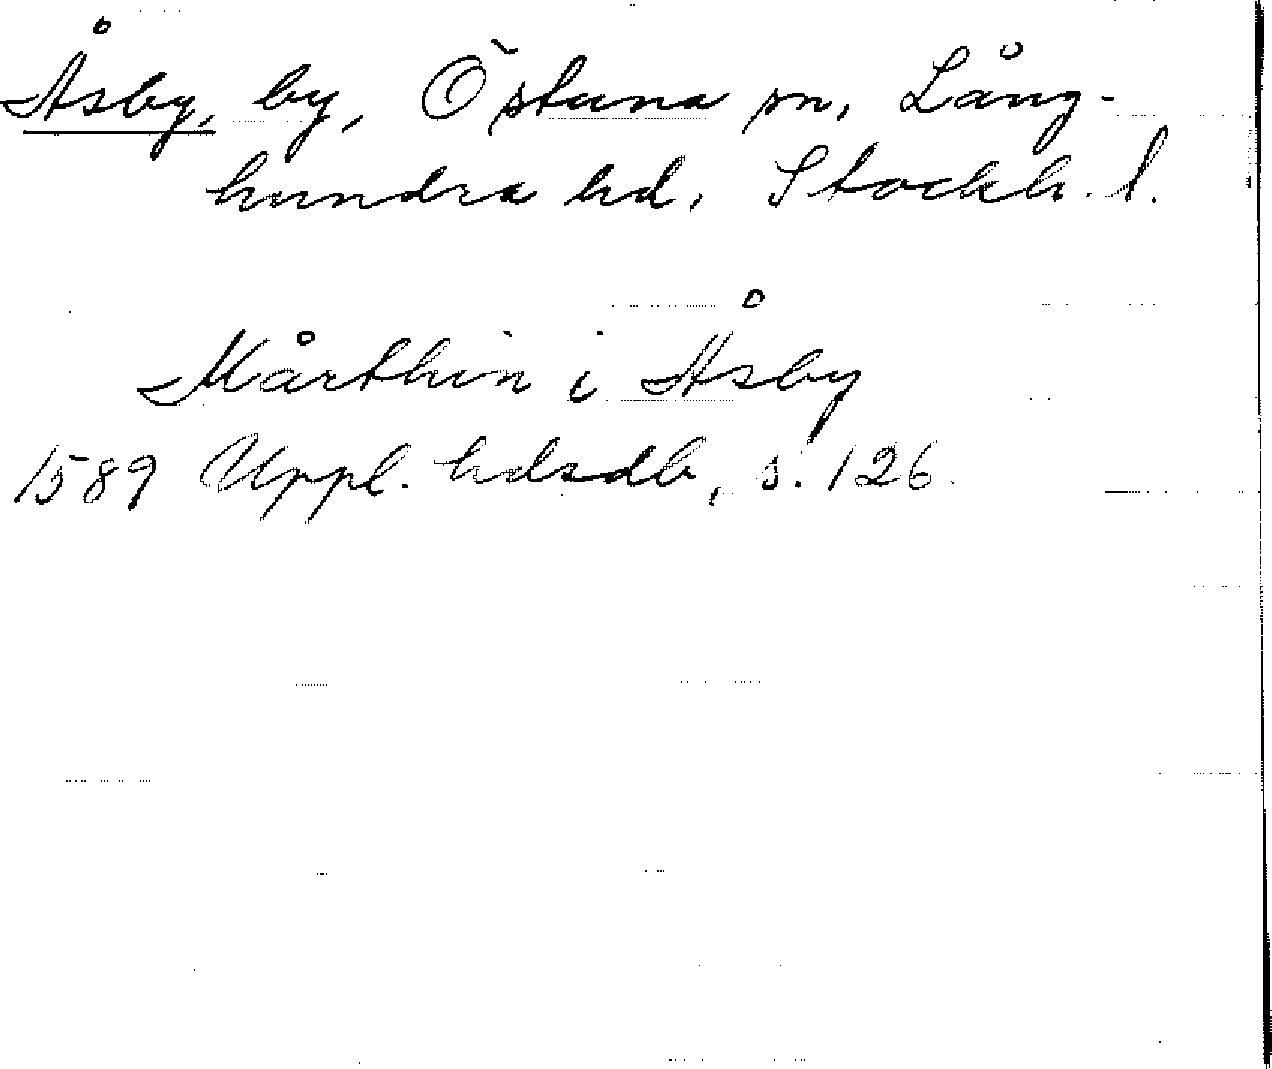 Åsby, by, Östuna sn, Lång-
hundra hd, Stockh. l.
Mårthin i Åsby
1589 Uppl. hdsdb, s. 126.